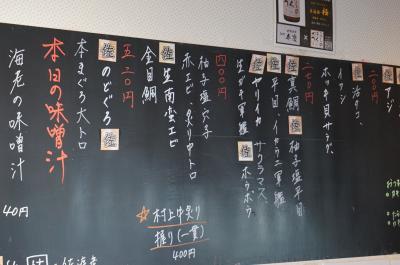 アジ
二〇〇円
佐 活タコ、
イワシ
ホッキ貝サラダ、
二七〇円
佐 真鯛
佐 平目、イカウニ軍艦
佐 柚子塩平目
佐 ヤリイカ
サクラマス
佐 ホウボウ
生ガキ軍艦
四〇〇円
柚子塩穴子
赤エビ、炙り中トロ
佐 生南蛮エビ
金目鯛
五二〇円
佐 のどぐろ
本まぐろ大トロ
本日の味噌汁
海老の味噌汁
40円
☆村上牛炙り
握り(一貫)
400円